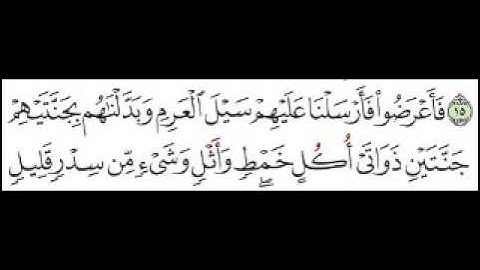 ١٥ فَأَعْرَضُوا۟ فَأَرْسَلْنَا عَلَيْهِمْ سَيْلَ ٱلْعَرِمِ وَبَدَّلْنَٰهُم بِجَنَّتَيْهِمْ
جَنَّتَيْنِ ذَوَاتَىْ أُكُلٍ خَمْطٍ وَأَثْلٍ وَشَىْءٍ مِّن سِدْرٍ قَلِيلٍ